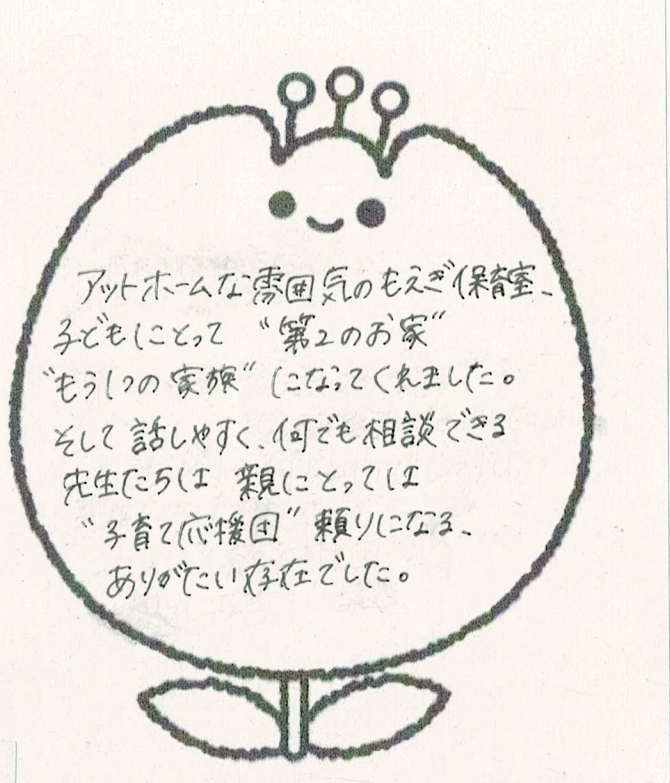 アットホームな雰囲気のもえぎ保育室、
子どもにとって “第2のお家”
“もう1つの家族” になってくれました。
そして 話しやすく、何でも相談できる
先生たちは 親にとっては
“子育て応援団” 頼りになる、
ありがたい存在でした。